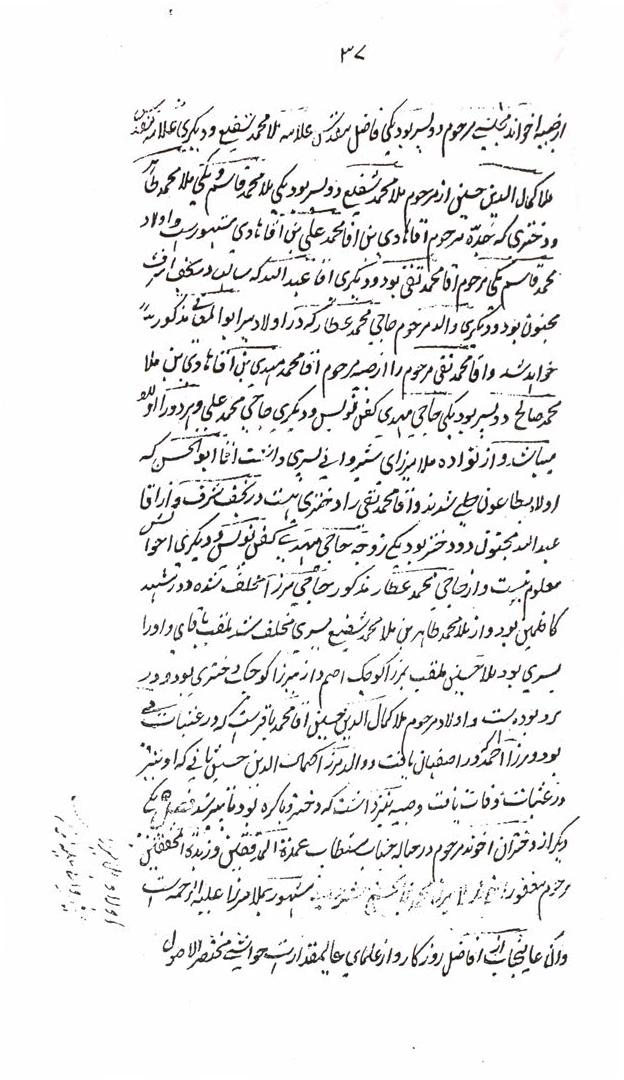 ۳۷
از صبیه اخواند مجلسی مرحوم دو پسر بود یکی فاضل مقدس علامه ملا محمد شفیع و دیگری علامه
ملا کمال الدین حسین از مرحوم ملا محمد شفیع دو پسر بود یکی ملا محمد قاسم و یکی ملا محمد طاهر
و دختری که جده مرحوم آقا هادی بن آقا محمد علی بن آقا هادی مشهور است و اولاد
محمد قاسم یکی مرحوم آقا محمد تقی بود و دیگری آقا عبد الله که سالها در نجف اشرف
مجنون بود و دیگری والد مرحوم حاجی محمد عطار که در اولاد میر ابو المعالی مذکور
خواهد شد و آقا محمد تقی مرحوم را از صبیه مرحوم آقا محمد مهدی بن آقا هادی بن ملا
محمد صالح دو پسر بود یکی حاجی مهدی کفن نویس و دیگری حاجی محمد علی و هر دو را اولاد
میباشد و از نواده ملا میرزای شیروانی پسری داشت آقا ابو الحسن که
اولاد بطاعون شدند و آقا محمد تقی را دختری هست در نجف اشرف و از آقا
عبد الله مجنون دو دختر بود یکی زوجه حاجی مهدی کفن نویس و دیگری احوالش
معلوم نیست و از حاجی محمد عطار مذکور حاجی میرزا مخلف شده و در مشهد
کاظمین بود و از ملا محمد طاهر بن ملا محمد شفیع پسری مخلف شد ملقب بآقای و او را
پسری بود ملا حسین ملقب بمیرزا کوچک اصم و از میرزا کوچک دختری بود و در
بوده است و اولاد مرحوم ملا کمال الدین حسین آقا محمد باقر است که در عتبات
بود و میرزا احمد در اصفهان یافت و والد میرزا کمال الدین حسین ثانی که او نیز
در عتبات وفات یافت و صبیه نیز داشت که دختر و باکره بود فصل یکی
دیگر از دختران آخوند مرحوم در حباله جناب مستطاب عمدة المدققین و زبدة المحققین
مرحوم مغفور مشهور بملا میرزا علیه الرحمه است
و آن عالیجناب از افاضل روزگار و از علمای عالیمقدار است حواشی مختصر الاصول